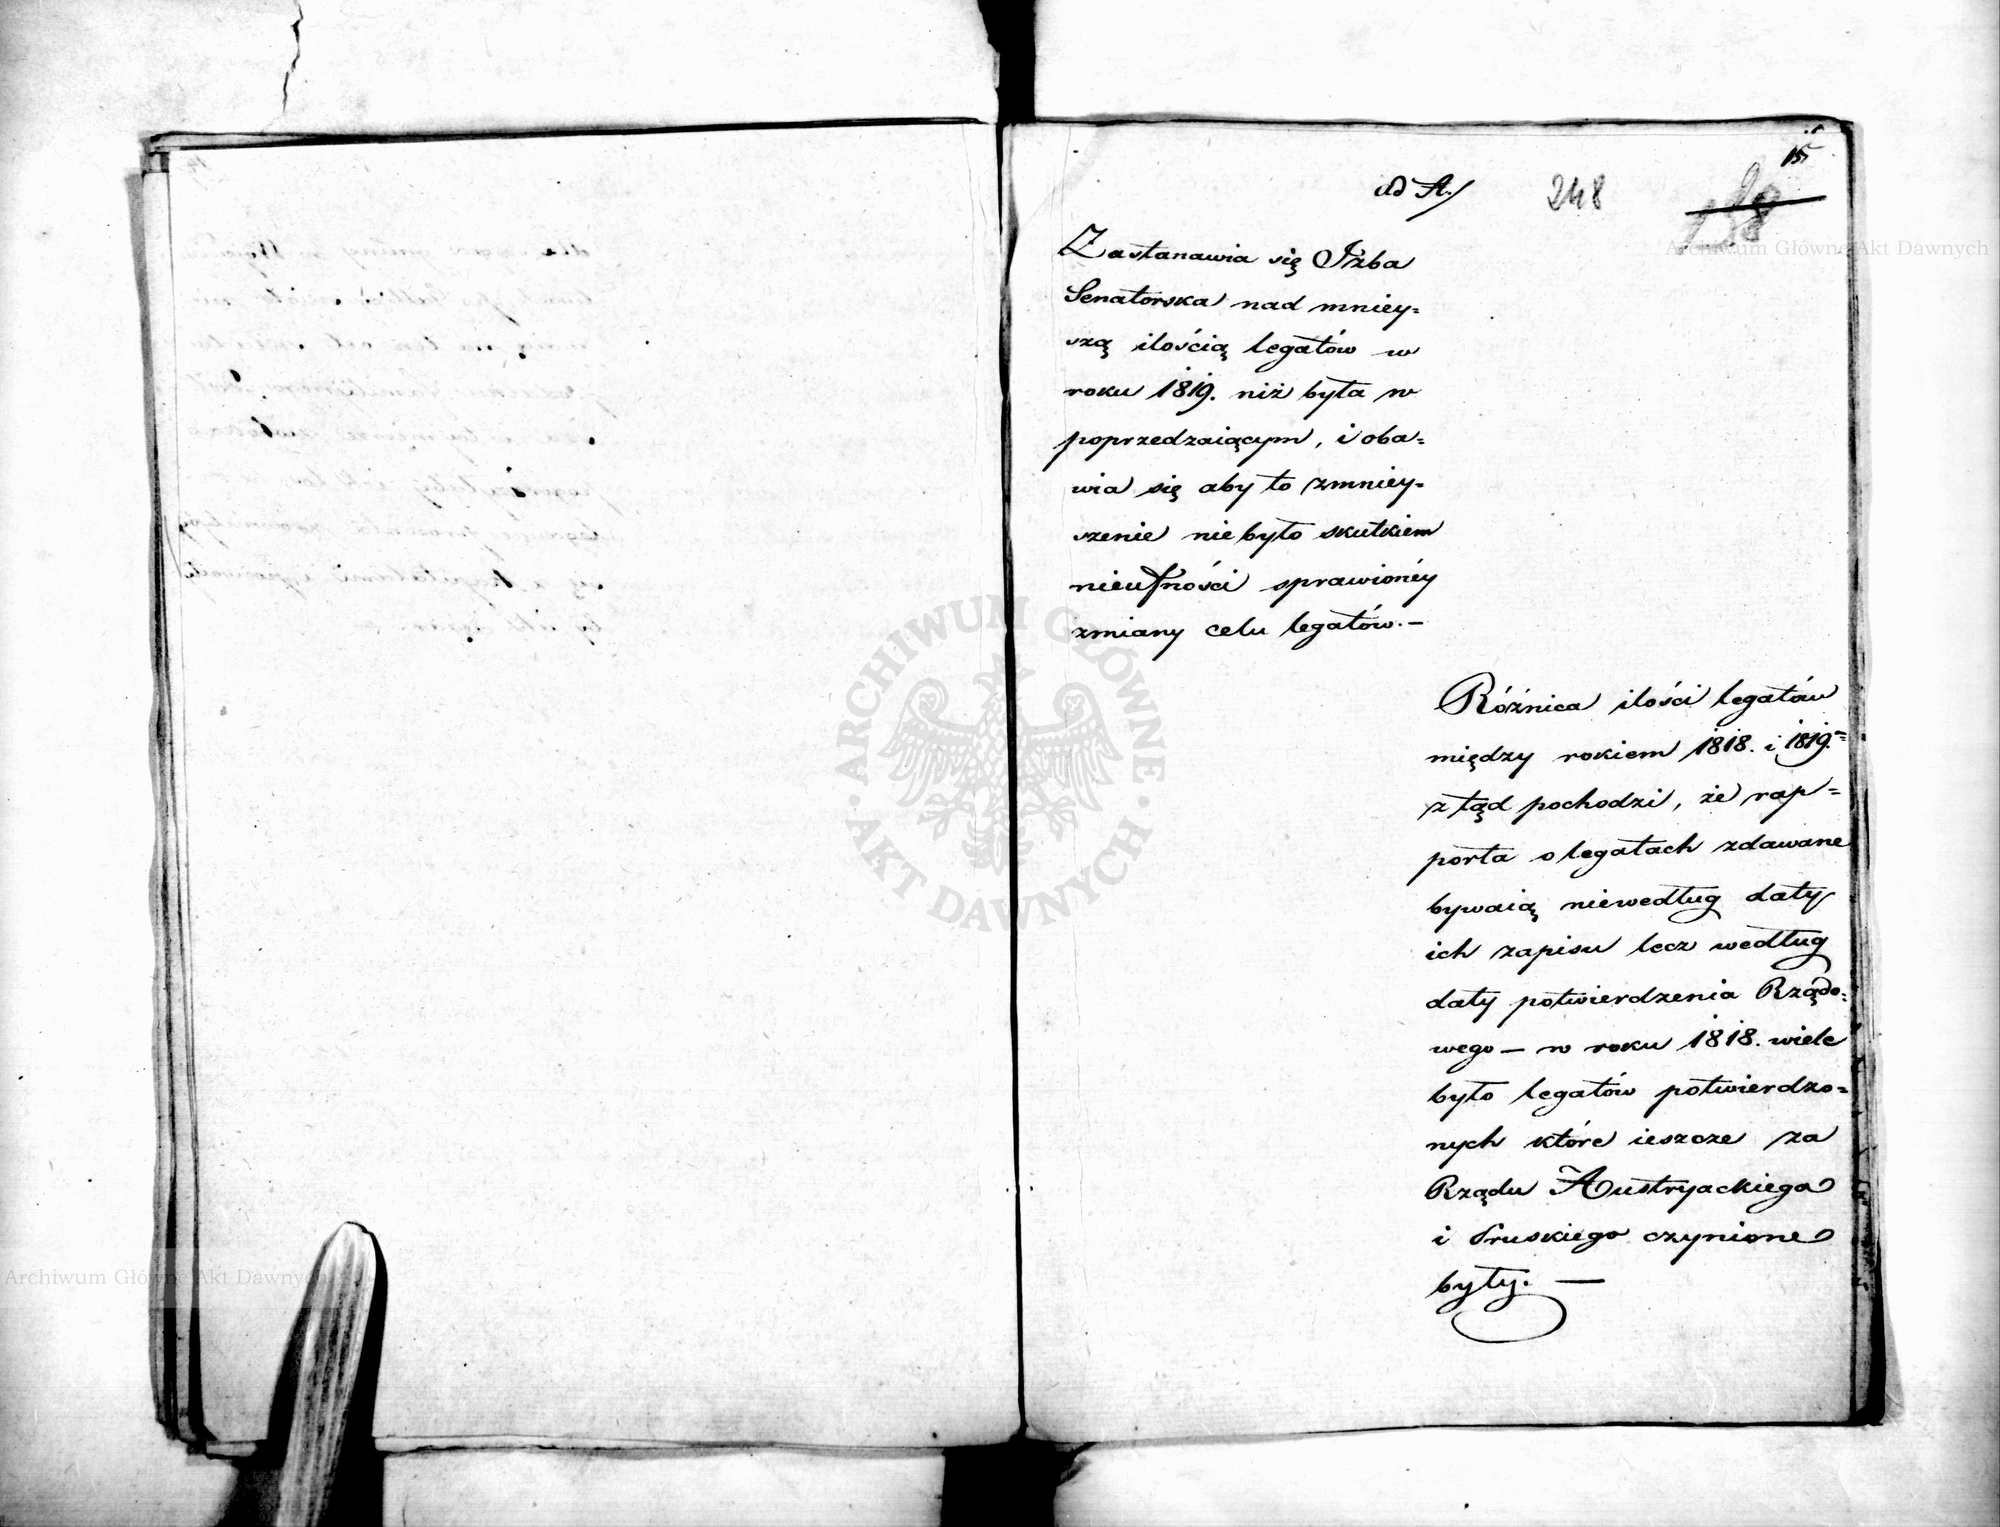 15
ad A./
248
Zastanawia się Izba
Senatorska nad mniey=
szą ilością legatów w
roku 1819. niż była w
poprzedzaiącym, i oba=
wia się aby to zmniey=
szenie niebyło skutkiem
nieufności sprawionéy
zmiany celu legatów. —
Różnica ilości legatów
między rokiem 1818. i 1819.=
z tąd pochodzi, że rap=
porta o legatach zdawane
bywaią niewedług daty
ich zapisu lecz według
daty potwierdzenia Rządo=
wego — w roku 1818. wiele
było legatów potwierdzo=
nych które ieszcze za
Rządu Austryackiego
i Pruskiego czynione
były. —
Archiwum Główne Akt Dawnych
Archiwum Główne Akt Dawnych
ARCHIWUM GŁÓWNE
AKT DAWNYCH